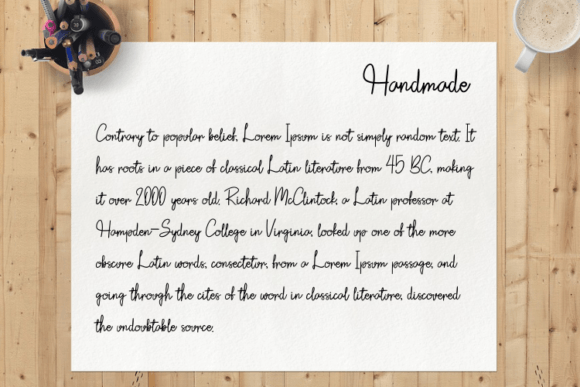 Handmade
Contrary to popular belief, Lorem Ipsum is not simply random text. It
has roots in a piece of classical Latin literature from 45 BC, making
it over 2000 years old. Richard McClintock, a Latin professor at
Hampden-Sydney College in Virginia, looked up one of the more
obscure Latin words, consectetur, from a Lorem Ipsum passage, and
going through the cites of the word in classical literature, discovered
the undoubtable source.